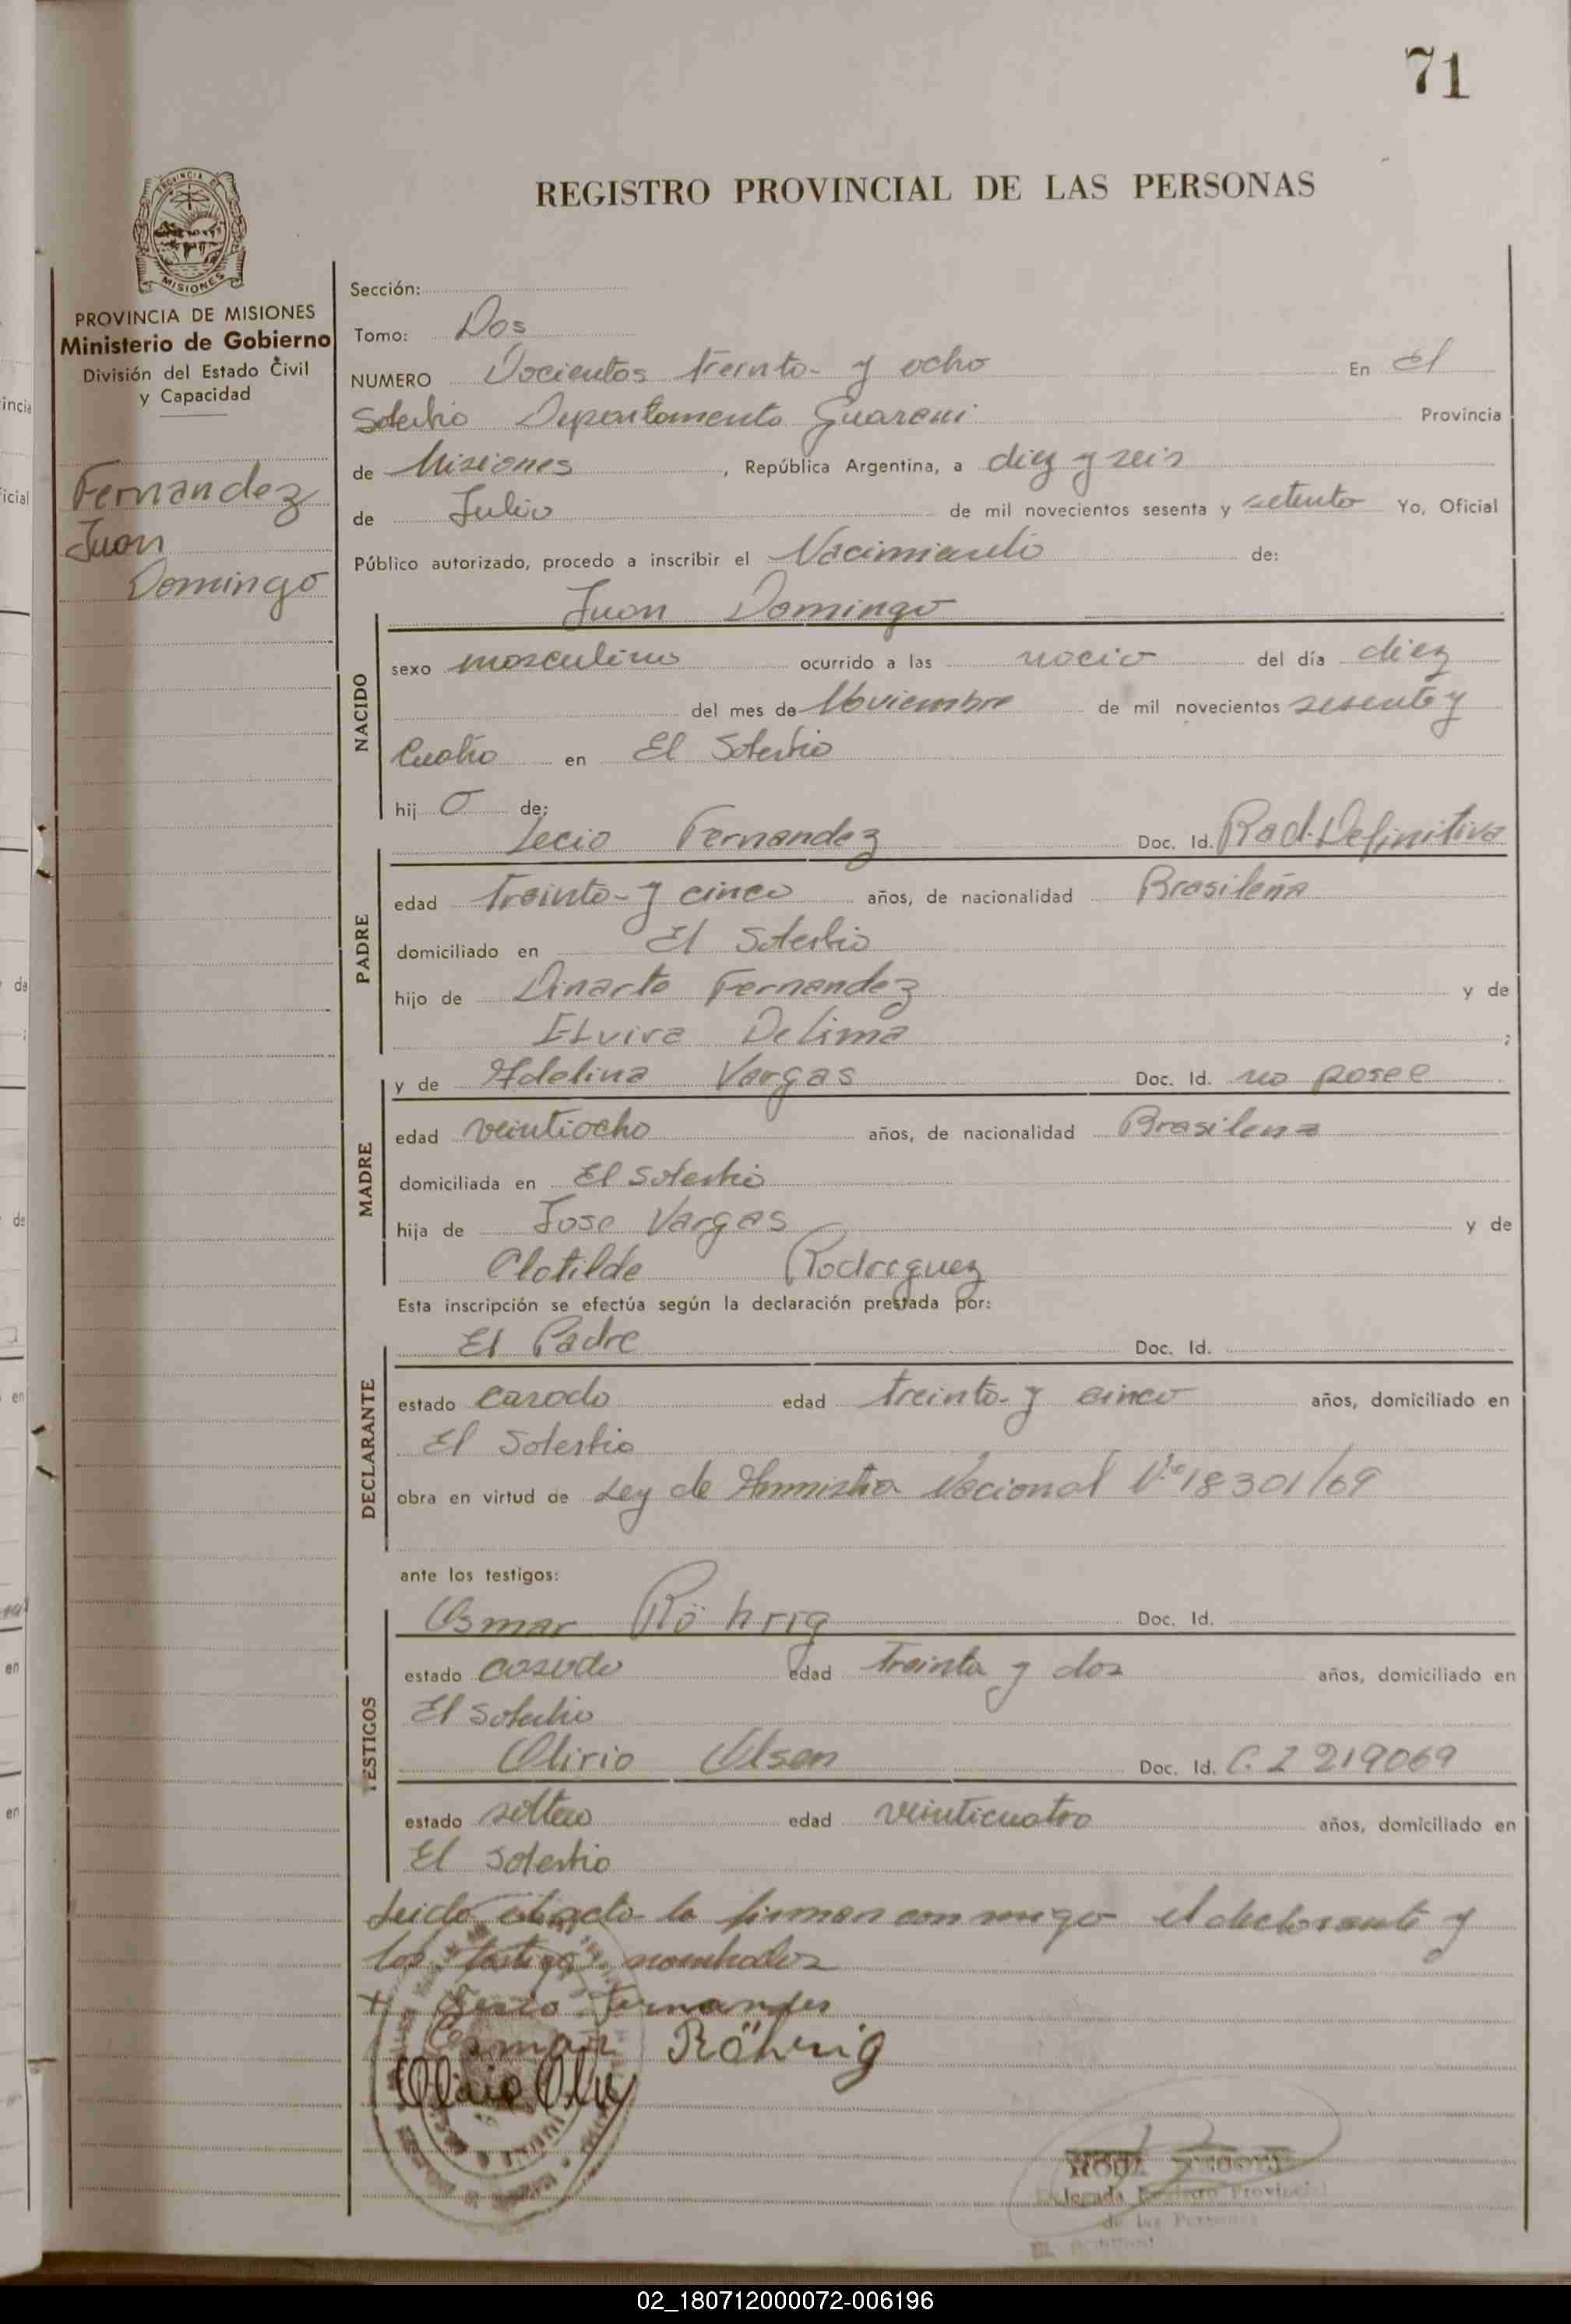 71
REGISTRO PROVINCIAL DE LAS PERSONAS
PROVINCIA DE MISIONES
PROVINCIA DE MISIONES
Ministerio de Gobierno
División del Estado Civil
y Capacidad
Fernandez
Juan
Domingo
Sección:
Tomo: Dos
NUMERO Docientos treinta y ocho En el
Soberbio Departamento Guarani Provincia
de Misiones, República Argentina, a diez y seis
de Julio de mil novecientos sesenta y setenta Yo, Oficial
Público autorizado, procedo a inscribir el Nacimiento de:
Juan Domingo
NACIDO
sexo masculino ocurrido a las nacio del día diez
del mes de Noviembre de mil novecientos sesenta y
Cuatro en El Soberbio
hij o de:
PADRE
Lecio Fernandez Doc. Id. Rad. Definitiva
edad treinta y cinco años, de nacionalidad Brasileña
domiciliado en El Soberbio
hijo de Dinarte Fernandez y de
Elvira De Lima ;
MADRE
y de Adelina Vargas Doc. Id. no posee
edad veintiocho años, de nacionalidad Brasilena
domiciliada en El Soberbio
hija de Jose Vargas y de
Clotilde Rodriguez
Esta inscripción se efectúa según la declaración prestada por:
DECLARANTE
El Padre Doc. Id.
estado casado edad treinta y cinco años, domiciliado en
El Soberbio
obra en virtud de Ley de Amnistia Nacional Nº 18301/69
ante los testigos:
TESTIGOS
Osmar Röhrig Doc. Id.
estado casado edad treinta y dos años, domiciliado en
El Soberbio
Olirio Olsen Doc. Id. C. I 219069
estado soltero edad veinticuatro años, domiciliado en
El Soberbio
Leido el acta la firman con migo el declarante y
los testigos nombrados
Fernandes
Osmar Röhrig
Delegada Registro Provincial
de las Personas
EL SOBERBIO
02_180712000072-006196